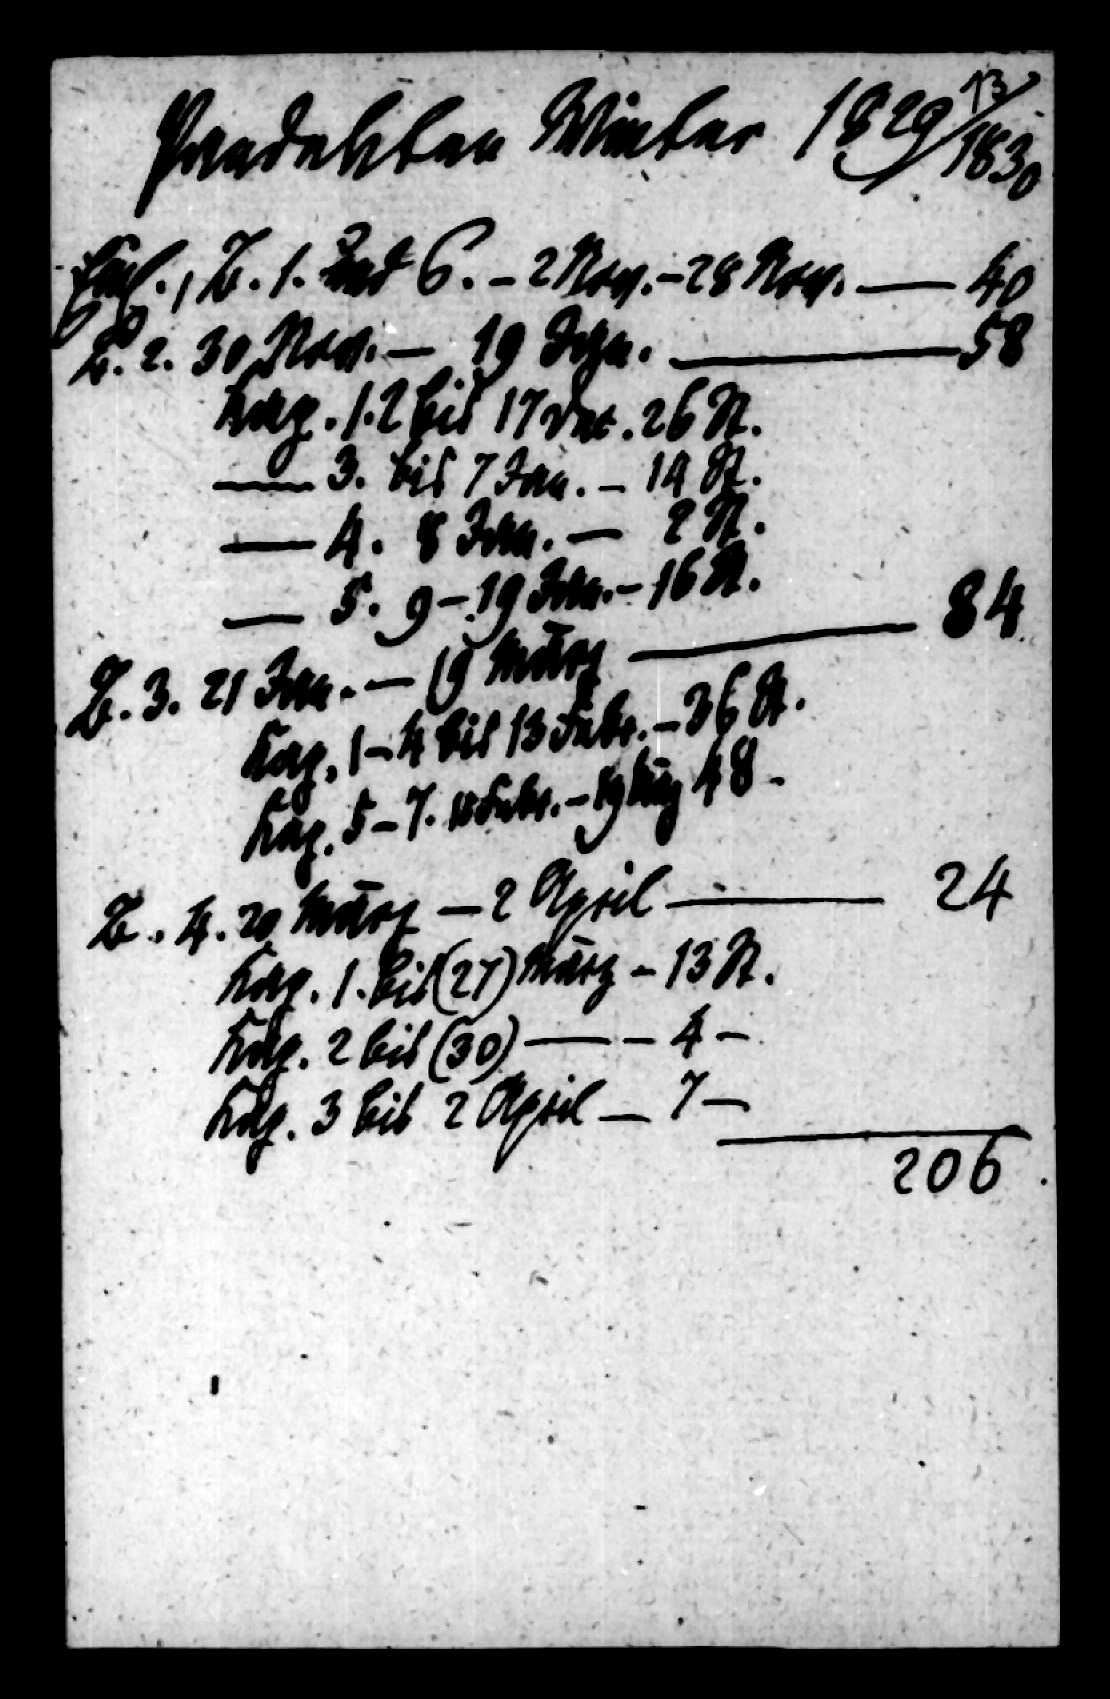 13
Pandekten Winter 1829/1830
Einl., B. 1. und 6. – 2 Nov. – 28 Nov. — 40
B. 2. 30 Nov. — 19 Jan. — 58
Kap. 1. 2 bis 17 Dec. 26 St.
— 3. bis 7 Jan. – 14 St.
— 4. 8 Jan. — 2 St.
— 5. 9 – 19 Jan. – 16 St.
B. 3. 21 Jan. — 19 März — 84
Kap. 1 – 4 bis 13 Febr. – 36 St.
Kap. 5 – 7. 15 Febr. – 19 März 48 –
B. 4. 20 März — 2 April — 24
Kap. 1. bis (27) März – 13 St.
Kap. 2 bis (30) — – 4 –
Kap. 3 bis 2 April — 7 –
206